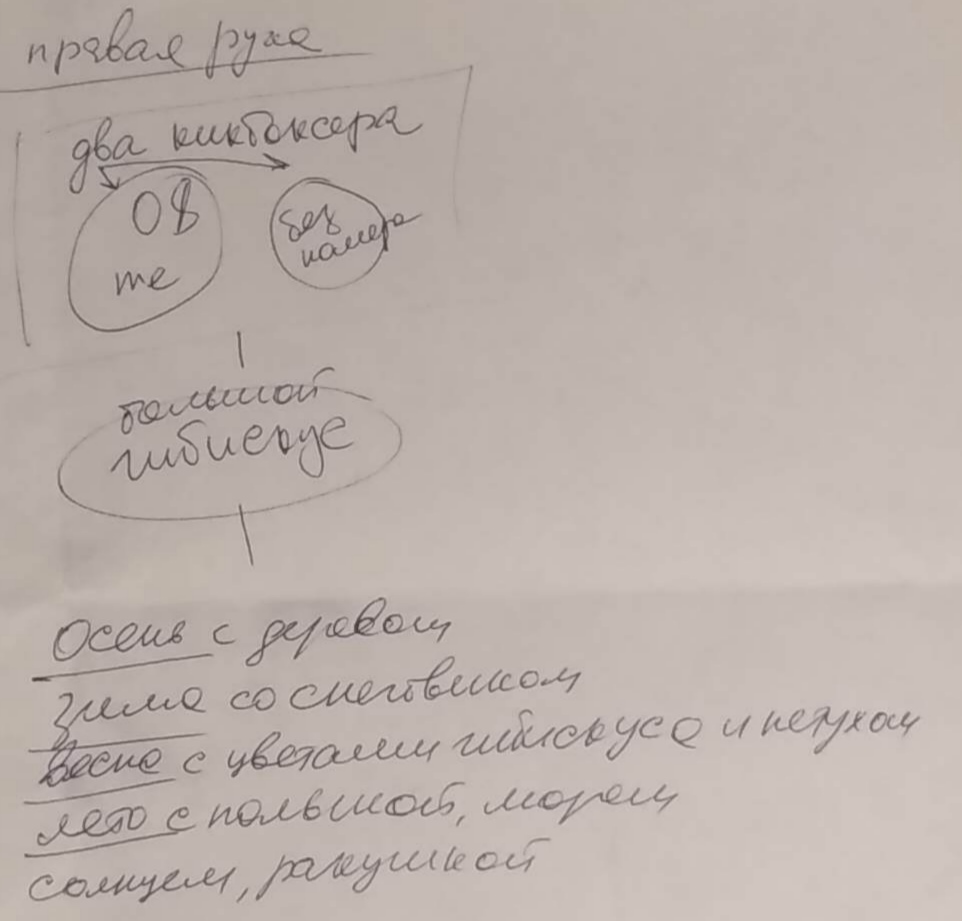 правая рука
два кикбоксера
08
те
без
намера
большой
гибискус
Осень с деревом
Зима со снеговиком
Весна с цветами гибискуса и петухом
лето с пальмой, морем
солнцем, ракушкой